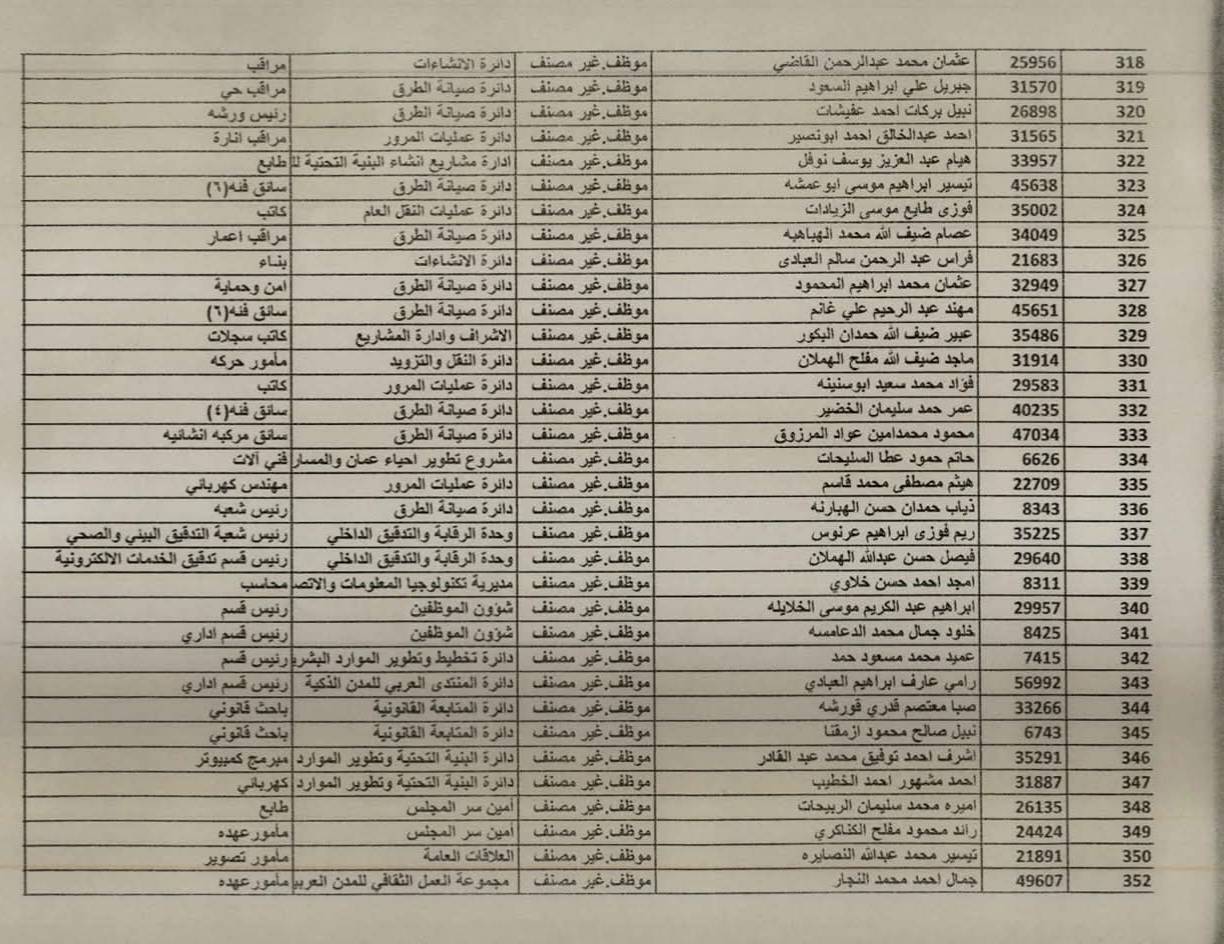 318 25956 عثمان محمد عبدالرحمن القاضي موظف.غير مصنف دائرة الانشاءات مراقب
319 31570 جبريل علي ابراهيم السعود موظف.غير مصنف دائرة صيانة الطرق مراقب حي
320 26898 نبيل بركات احمد عفيشات موظف.غير مصنف دائرة صيانة الطرق رئيس ورشه
321 31565 احمد عبدالخالق احمد ابونصير موظف.غير مصنف دائرة عمليات المرور مراقب انارة
322 33957 هيام عبد العزيز يوسف نوفل موظف.غير مصنف ادارة مشاريع انشاء البنية التحتية لل طابع
323 45638 تيسير ابراهيم موسى ابو عمشه موظف.غير مصنف دائرة صيانة الطرق سائق فنه(٦)
324 35002 فوزى طايع موسى الزيادات موظف.غير مصنف دائرة عمليات النقل العام كاتب
325 34049 عصام ضيف الله محمد الهباهبه موظف.غير مصنف دائرة صيانة الطرق مراقب اعمار
326 21683 فراس عبد الرحمن سالم العبادى موظف.غير مصنف دائرة الانشاءات بناء
327 32949 عثمان محمد ابراهيم المحمود موظف.غير مصنف دائرة صيانة الطرق امن وحماية
328 45651 مهند عبد الرحيم علي غانم موظف.غير مصنف دائرة صيانة الطرق سائق فنه(٦)
329 35486 عبير ضيف الله حمدان البكور موظف.غير مصنف الاشراف وادارة المشاريع كاتب سجلات
330 31914 ماجد ضيف الله مفلح الهملان موظف.غير مصنف دائرة النقل والتزويد مأمور حركه
331 29583 فؤاد محمد سعيد ابوسنينه موظف.غير مصنف دائرة عمليات المرور كاتب
332 40235 عمر حمد سليمان الخضير موظف.غير مصنف دائرة صيانة الطرق سائق فنه(٤)
333 47034 محمود محمدامين عواد المرزوق موظف.غير مصنف دائرة صيانة الطرق سائق مركبه انشائيه
334 6626 حاتم حمود عطا السليحات موظف.غير مصنف مشروع تطوير احياء عمان والمسار فني آلات
335 22709 هيثم مصطفى محمد قاسم موظف.غير مصنف دائرة عمليات المرور مهندس كهربائي
336 8343 ذياب حمدان حسن الهبارنه موظف.غير مصنف دائرة صيانة الطرق رئيس شعبه
337 35225 ريم فوزى ابراهيم عرنوس موظف.غير مصنف وحدة الرقابة والتدقيق الداخلي رئيس شعبة التدقيق البيئي والصحي
338 29640 فيصل حسن عبدالله الهملان موظف.غير مصنف وحدة الرقابة والتدقيق الداخلي رئيس قسم تدقيق الخدمات الالكترونية
339 8311 امجد احمد حسن خلاوي موظف.غير مصنف مديرية تكنولوجيا المعلومات والاتص محاسب
340 29957 ابراهيم عبد الكريم موسى الخلايله موظف.غير مصنف شؤون الموظفين رئيس قسم
341 8425 خلود جمال محمد الدعامسه موظف.غير مصنف شؤون الموظفين رئيس قسم اداري
342 7415 عميد محمد مسعود حمد موظف.غير مصنف دائرة تخطيط وتطوير الموارد البشري رئيس قسم
343 56992 رامي عارف ابراهيم العبادي موظف.غير مصنف دائرة المنتدى العربي للمدن الذكية رئيس قسم اداري
344 33266 صبا معتصم قدري قورشه موظف.غير مصنف دائرة المتابعة القانونية باحث قانوني
345 6743 نبيل صالح محمود ازمقنا موظف.غير مصنف دائرة المتابعة القانونية باحث قانوني
346 35291 اشرف احمد توفيق محمد عبد القادر موظف.غير مصنف دائرة البنية التحتية وتطوير الموارد مبرمج كمبيوتر
347 31887 احمد مشهور احمد الخطيب موظف.غير مصنف دائرة البنية التحتية وتطوير الموارد كهربائي
348 26135 اميره محمد سليمان الربيحات موظف.غير مصنف أمين سر المجلس طابع
349 24424 رائد محمود مفلح الكناكري موظف.غير مصنف أمين سر المجلس مأمور عهده
350 21891 تيسير محمد عبدالله النصايره موظف.غير مصنف العلاقات العامة مأمور تصوير
352 49607 جمال احمد محمد النجار موظف.غير مصنف مجموعة العمل الثقافي للمدن العربي مأمور عهده